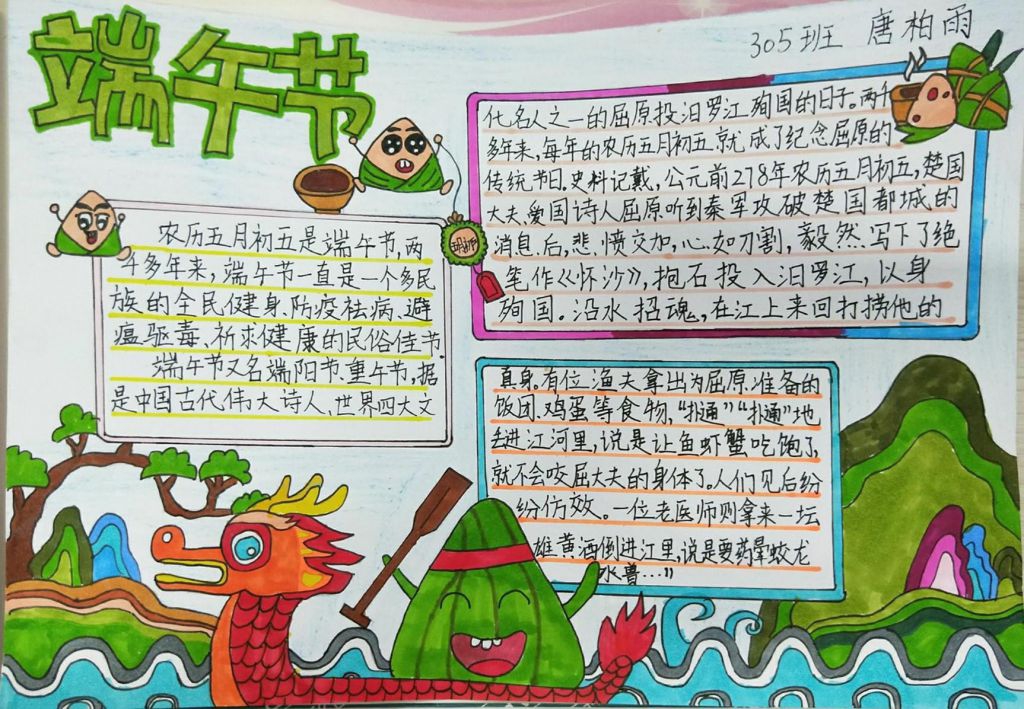 端午节
305班 唐柏雨
农历五月初五是端午节,两
千多年来,端午节一直是一个多民
族的全民健身、防疫祛病、避
瘟驱毒、祈求健康的民俗佳节
端午节又名端阳节、重午节,据
是中国古代伟大诗人、世界四大文
化名人之一的屈原投汨罗江殉国的日子。两千
多年来,每年的农历五月初五就成了纪念屈原的
传统节日。史料记载,公元前278年农历五月初五,楚国
大夫、爱国诗人屈原听到秦军攻破楚国都城的
消息后,悲愤交加,心如刀割,毅然写下了绝
笔作《怀沙》,抱石投入汨罗江,以身
殉国。沿水招魂,在江上来回打捞他的
真身。有位渔夫拿出为屈原准备的
饭团、鸡蛋等食物,“扑通”“扑通”地
丢进江河里,说是让鱼虾蟹吃饱了,
就不会咬屈大夫的身体了。人们见后纷
纷仿效。一位老医师则拿来一坛
雄黄酒倒进江里,说是要药晕蛟龙
水兽…”